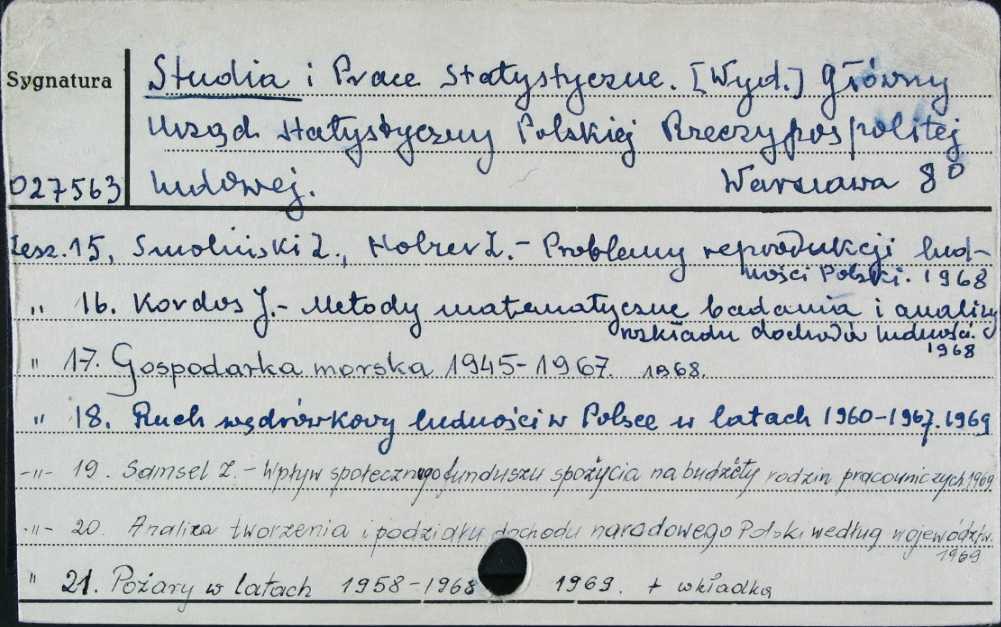 Sygnatura
Studia i Prace Statystyczne. [Wyd.] Główny
Urząd Statystyczny Polskiej Rzeczypospolitej
027563 Ludowej. Warszawa 8⁰
Zesz. 15. Smoliński Z., Holzer J. - Problemy reprodukcji lud-
ności Polski. 1968
" 16. Kordos J. - Metody matematyczne badania i analizy
rozkładu dochodów ludności.
1968
" 17. Gospodarka morska 1945-1967. 1968.
" 18. Ruch wędrówkowy ludności w Polsce w latach 1960-1967. 1969
-"- 19. Samsel Z. - Wpływ społecznego funduszu spożycia na budżety rodzin pracowniczych 1969.
-"- 20. Analiza tworzenia i podziału dochodu narodowego Polski według województw.
1969
" 21. Pożary w latach 1958-1968 1969. + wkładka